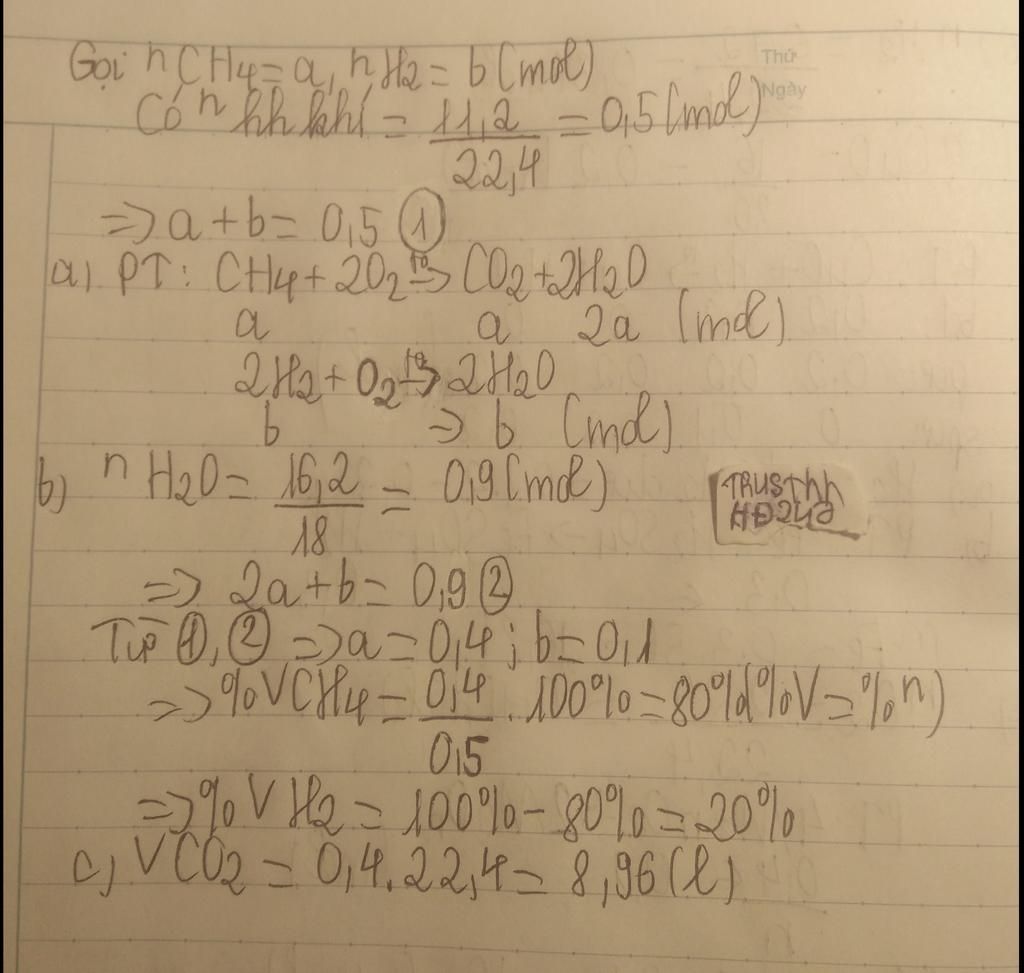 Gọi nCH4 = a, nH2 = b (mol)
Thứ
Ngày
Có nhh khí = 11,2 / 22,4 = 0,5 (mol)
=> a + b = 0,5 (1)
a) PT: CH4 + 2O2 -t°-> CO2 + 2H2O
a a 2a (mol)
2H2 + O2 -t°-> 2H2O
b => b (mol)
b) nH2O = 16,2 / 18 = 0,9 (mol)
TRUSThh
HĐ240
=> 2a + b = 0,9 (2)
Từ (1), (2) => a = 0,4 ; b = 0,1
=> %VCH4 = 0,4 / 0,5 . 100% = 80% (%V = %n)
=> %VH2 = 100% - 80% = 20%
c) VCO2 = 0,4.22,4 = 8,96 (l)